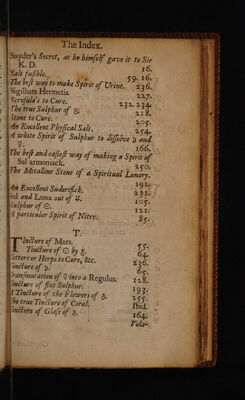 The Index.
Snyder's Secret, as he himself gave it to Sir
K. D. 16.
Salt fusible. 59. 16.
The best way to make Spirit of Urine. 236.
Sigillum Hermetis. 227.
Scrofula's to Cure. 232. 234.
The true Sulphur of ♁. 218.
Stone to Cure. 205.
An Excellent Physical Salt. 254.
A white Spirit of Sulphur to dissolve ☽ and
♀. 166.
The best and easiest way of making a Spirit of
Sal armoniack. 250.
The Metalline Stone of a Spiritual Lunary.
191.
An Excellent Sudorifick. 231.
Sol and Luna out of ♃. 105.
Sulphur of ☉. 121.
A particular Spirit of Nitre. 85.
T.
Tincture of Mars. 55.
Tincture of ☉ by ♁. 64.
Tetters or Herpes to Cure, &c. 236.
Tincture of ☽. 65.
Transmutation of ♀ into a Regulus. 128.
Tincture of fixt Sulphur. 193.
A Tincture of the Flowers of ♁. 255.
The true Tincture of Coral. Ibid.
Tincture of Glass of ♁. 164.
Vola-